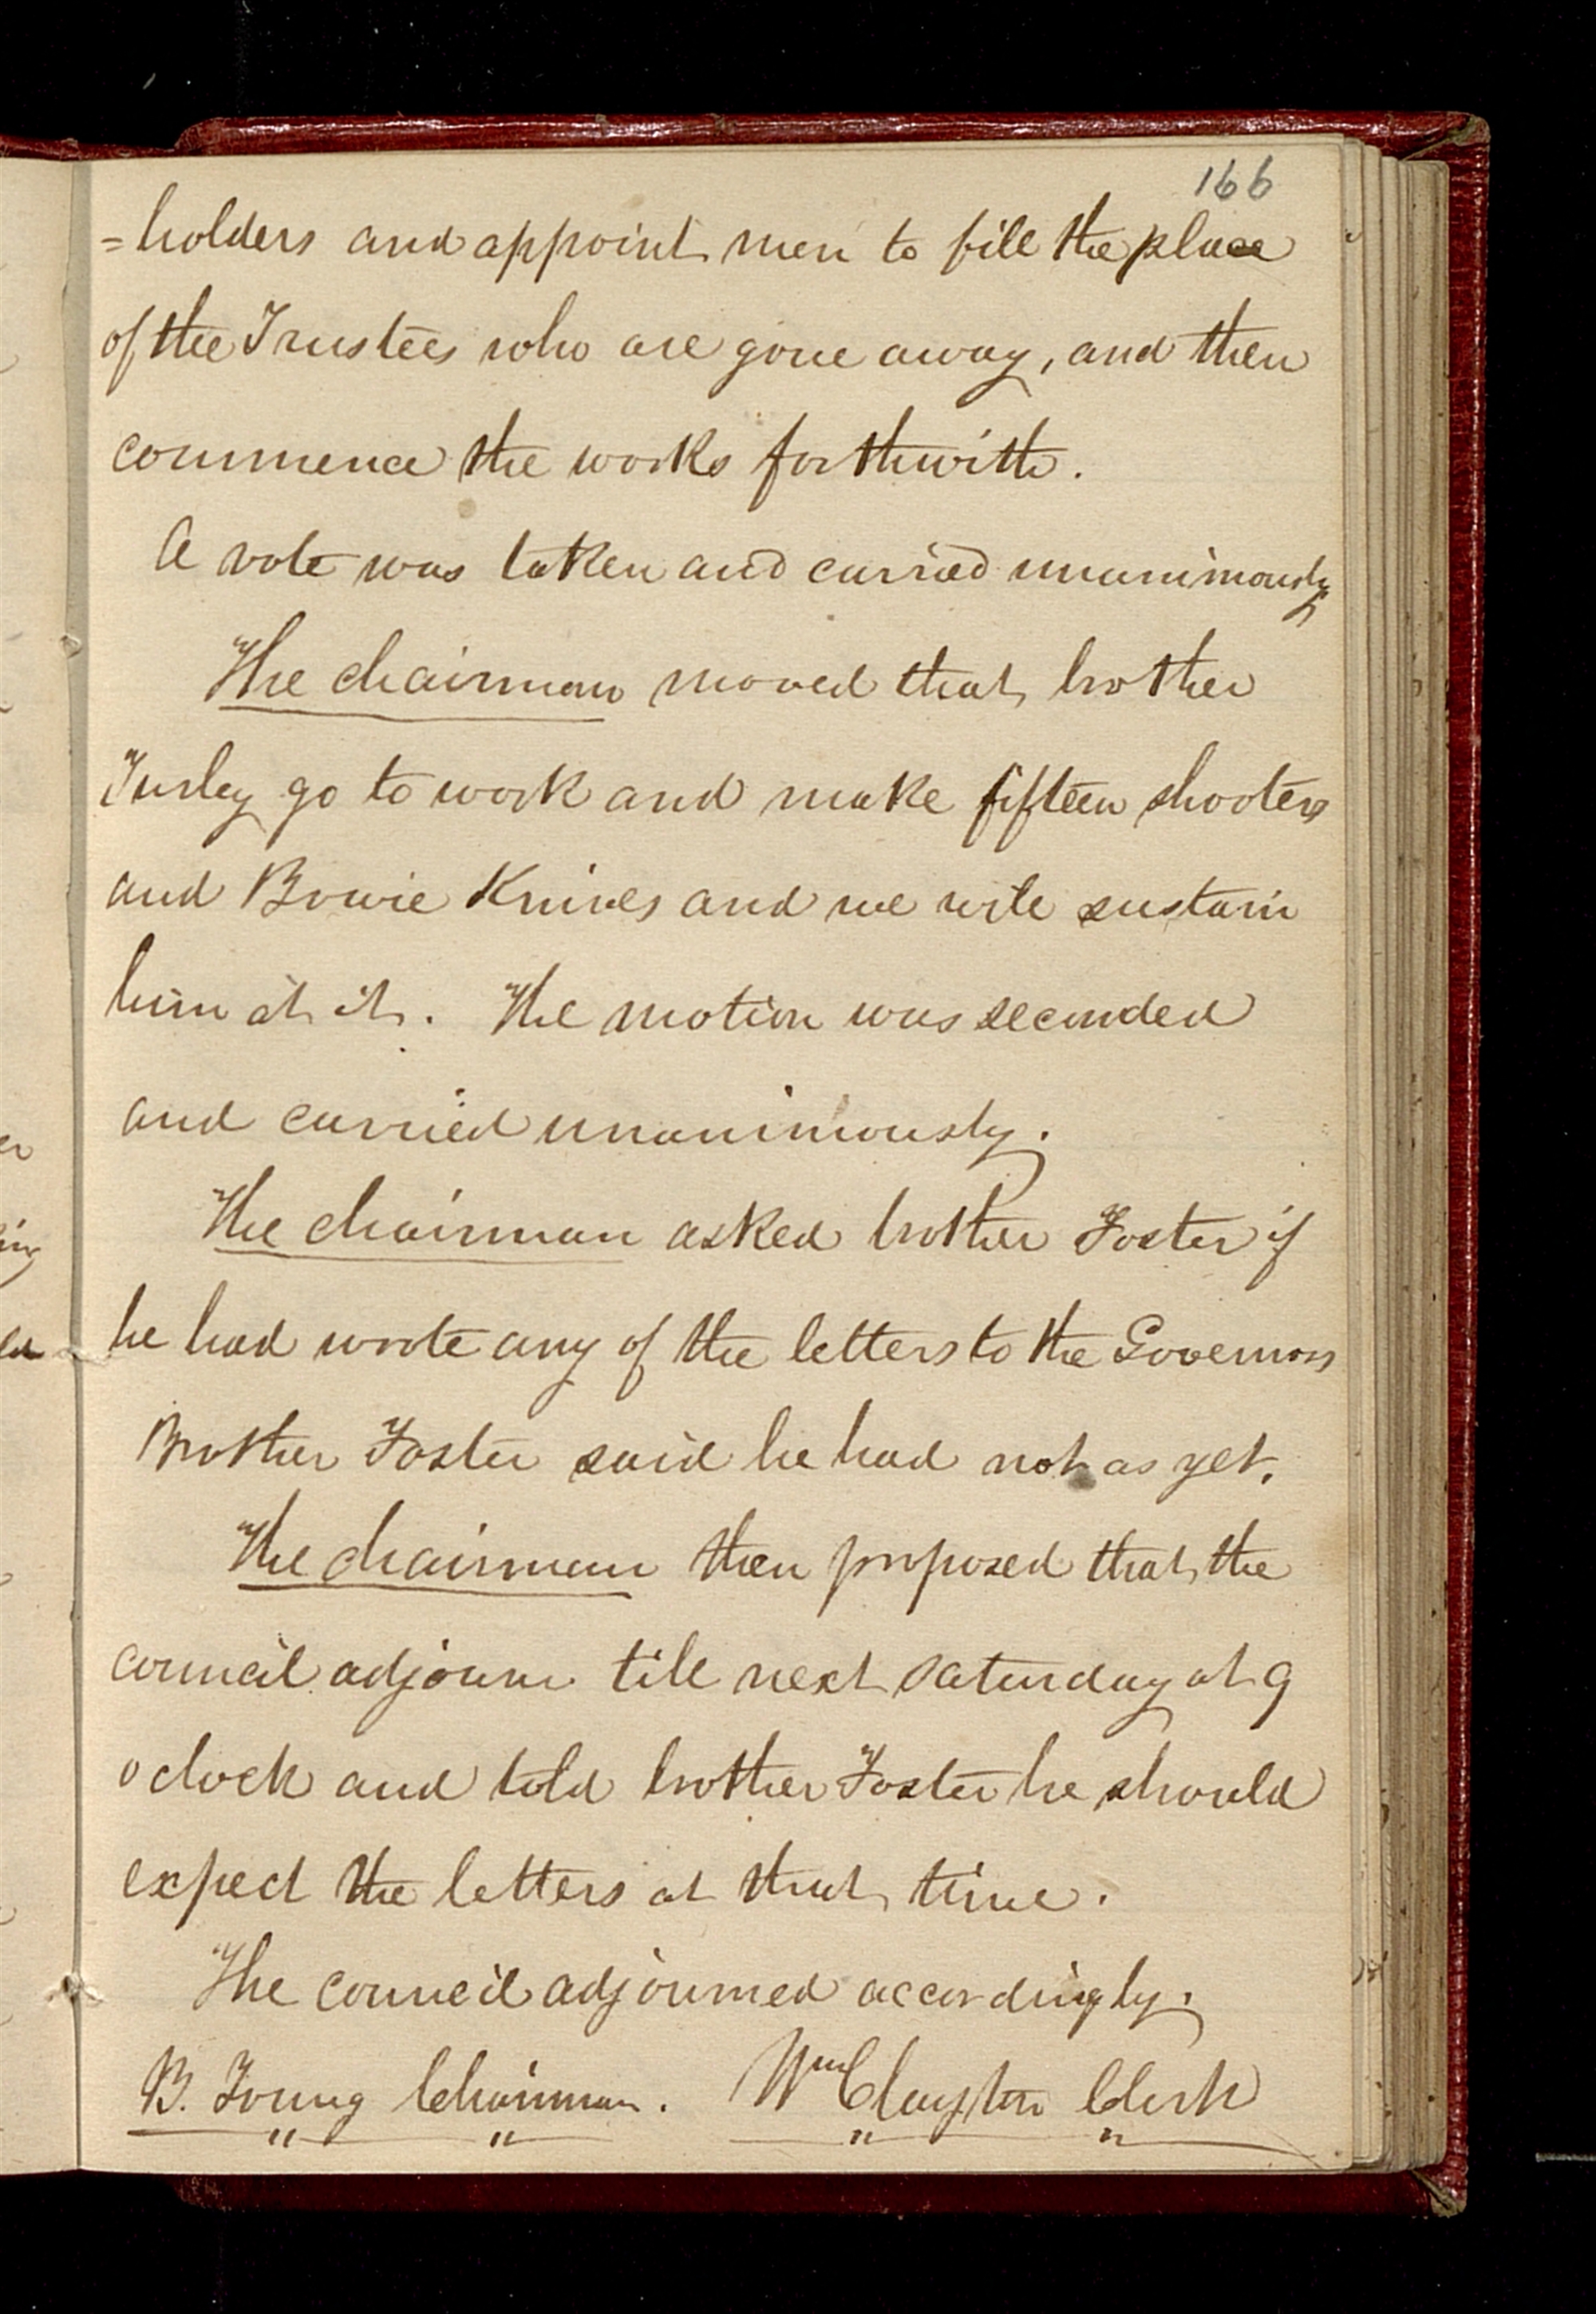 166
=holders and appoint men to fill the place
of the Trustees who are gone away, and then
commence the works forthwith.
A vote was taken and carried unanimously.
The chairman moved that brother
Turley go to work and make fifteen shooters
and Bowie Knives and we will sustain
him at it. The motion was seconded
and carried unanimously.
The chairman asked brother Foster if
he had wrote any of the letters to the Governors
Brother Foster said he had not as yet.
The chairman then proposed that the
council adjourn till next saturday at 9
o clock and told brother Foster he should
expect the letters at that time.
The council adjourned accordingly.
B. Young Chairman. Wm Clayton Clerk